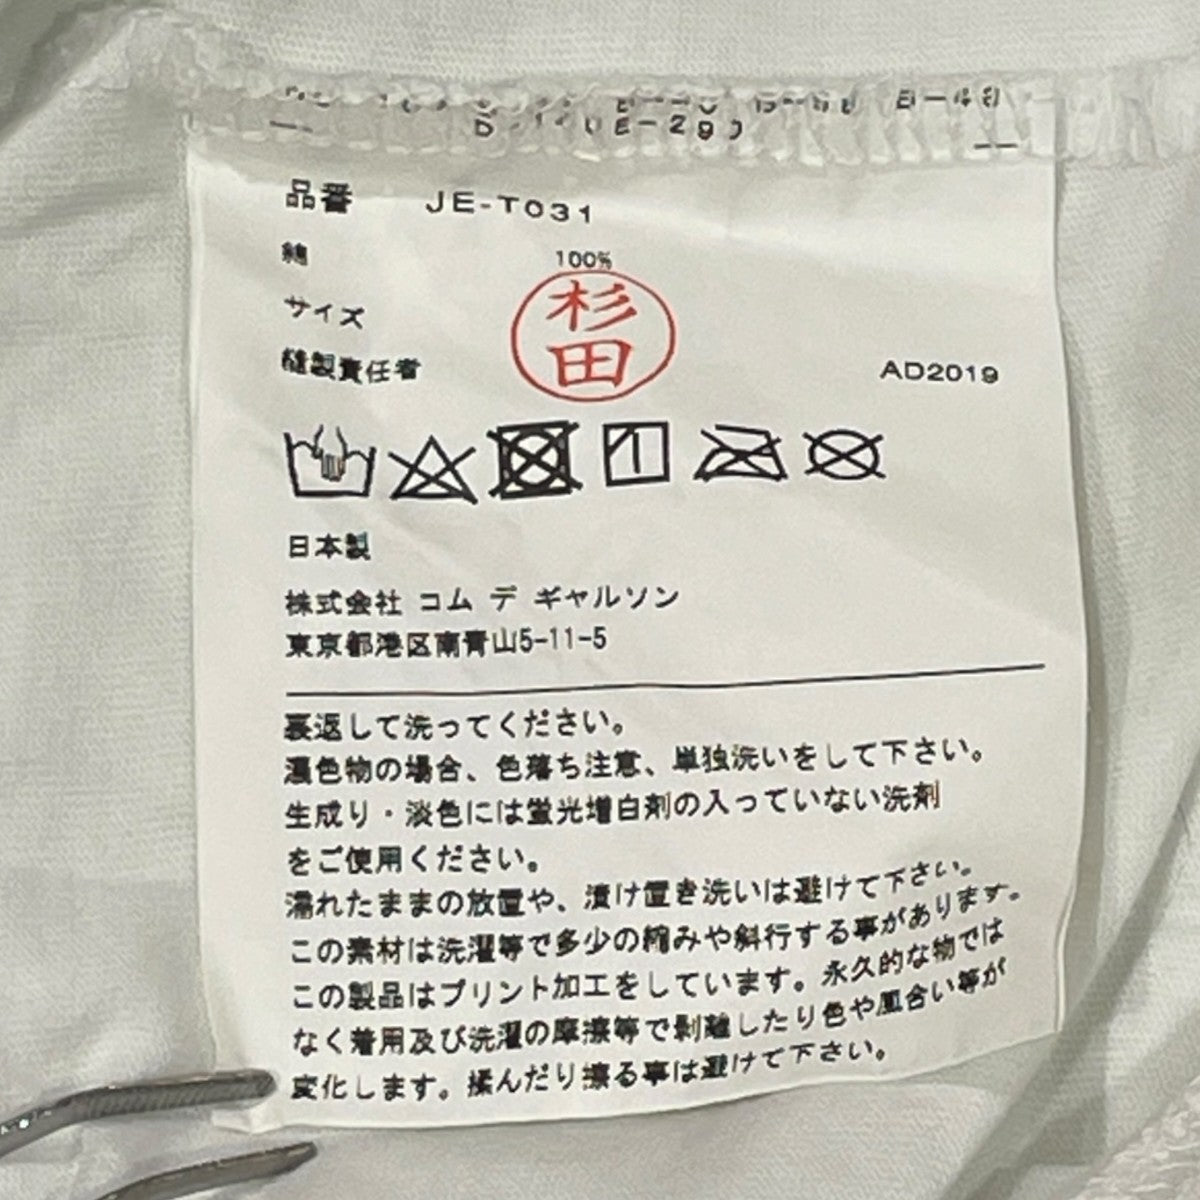 品番 JE-T031
綿 100%
サイズ
杉田
縫製責任者 AD2019
日本製
株式会社 コム デ ギャルソン
東京都港区南青山5-11-5
裏返して洗ってください。
濃色物の場合、色落ち注意、単独洗いをして下さい。
生成り・淡色には蛍光増白剤の入っていない洗剤
をご使用ください。
濡れたままの放置や、漬け置き洗いは避けて下さい。
この素材は洗濯等で多少の縮みや斜行する事があります。
この製品はプリント加工をしています。永久的な物では
なく着用及び洗濯の摩擦等で剥離したり色や風合い等が
変化します。揉んだり擦る事は避けて下さい。